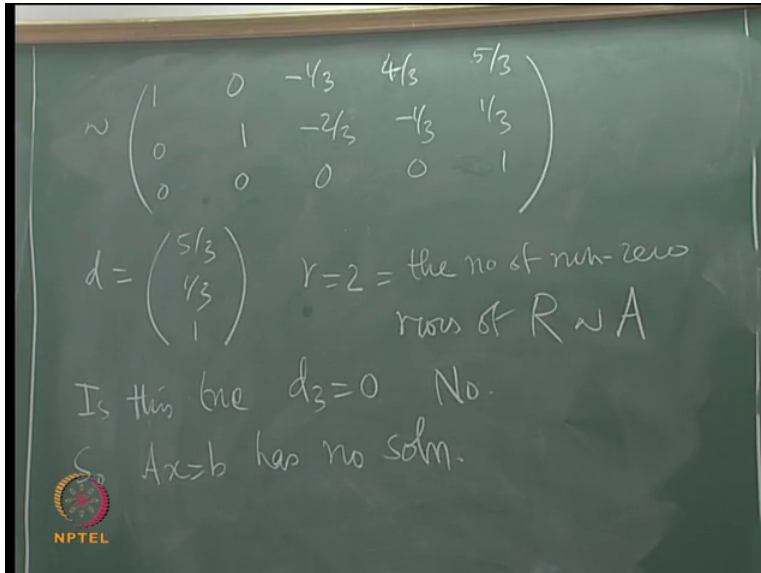 ~ ( 1 0 -1/3 4/3 5/3
0 1 -2/3 -1/3 1/3
0 0 0 0 1 )
d = ( 5/3 1/3 1 ) r=2 = the no of non-zero
rows of R ~ A
Is this true d₃=0 No.
So Ax=b has no soln.
NPTEL